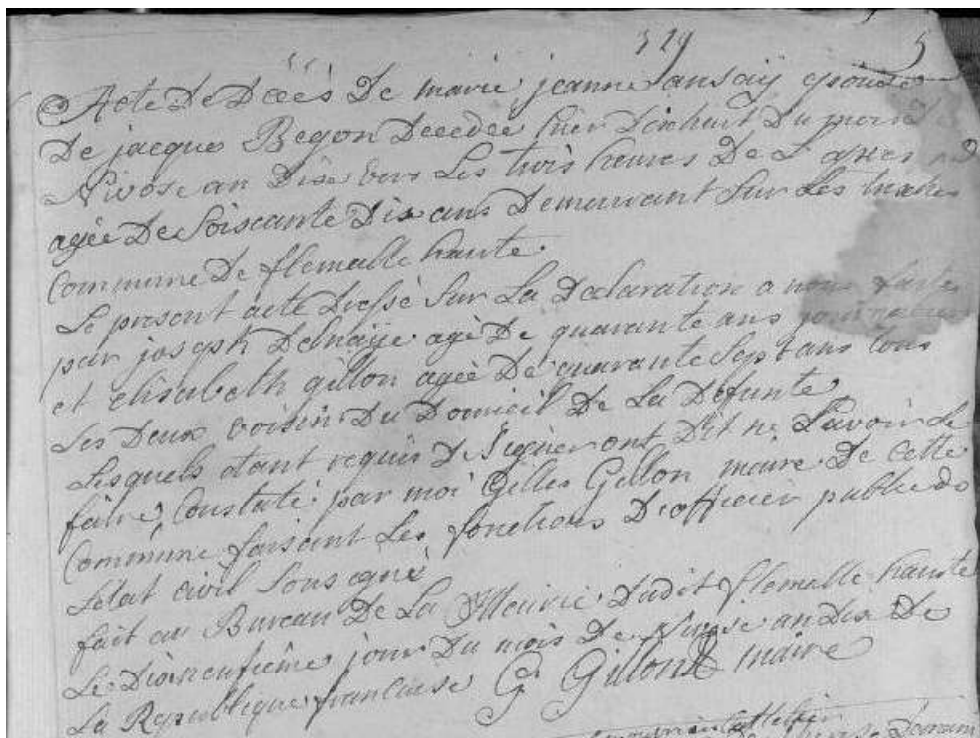 319 5
Acte De Décés De marie jeanne ansay epouse
De jacque Begon Decedée hier Dixhuit Du mois de
Nivose an Dix vers Les trois heures De L apres
agée De Soiscante Dix ans Demeurant Sur Les
Commune De flemalle haute
Le present acte Dressé Sur La Declaration a nous faite
par joseph Delhaÿe agé De quarante ans journalier
et elisabeth gillon agée De quarante Sept ans tous
Les Deux voisin Du Domicil De La Defunte
Lesquels etant requis De Signer ont Dit ne Savoir Le
faire, Constaté par moi Gilles Gillon maire De cette
Commune faisant Les fonctions D'officier public de
L'etat civil Sousigné
fait au Bureau De La Mairie Dudit flemalle haute
Le Dixneufieme jour Du mois De Nivose an Dix De
La Republique francaise G Gillon maire